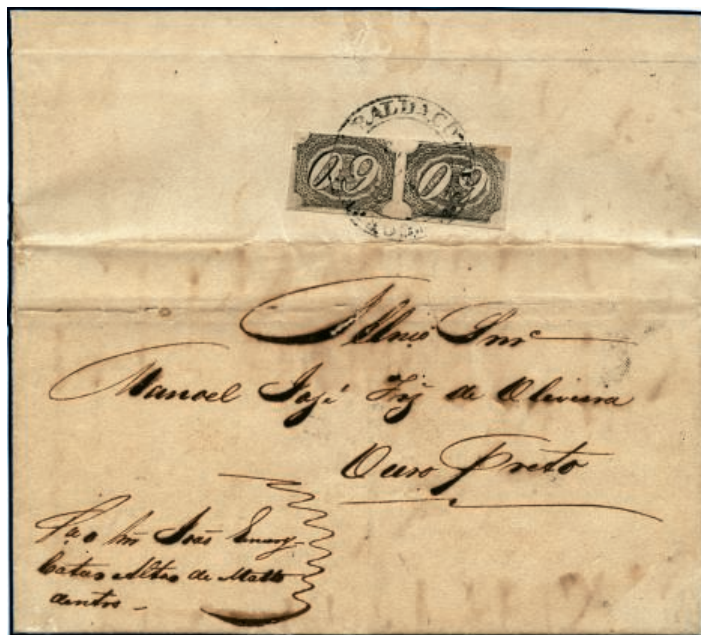 60 60
Illmo Snr
Manoel José de Oliveira
Ouro Preto
João
Catas Altas de Matto
dentro